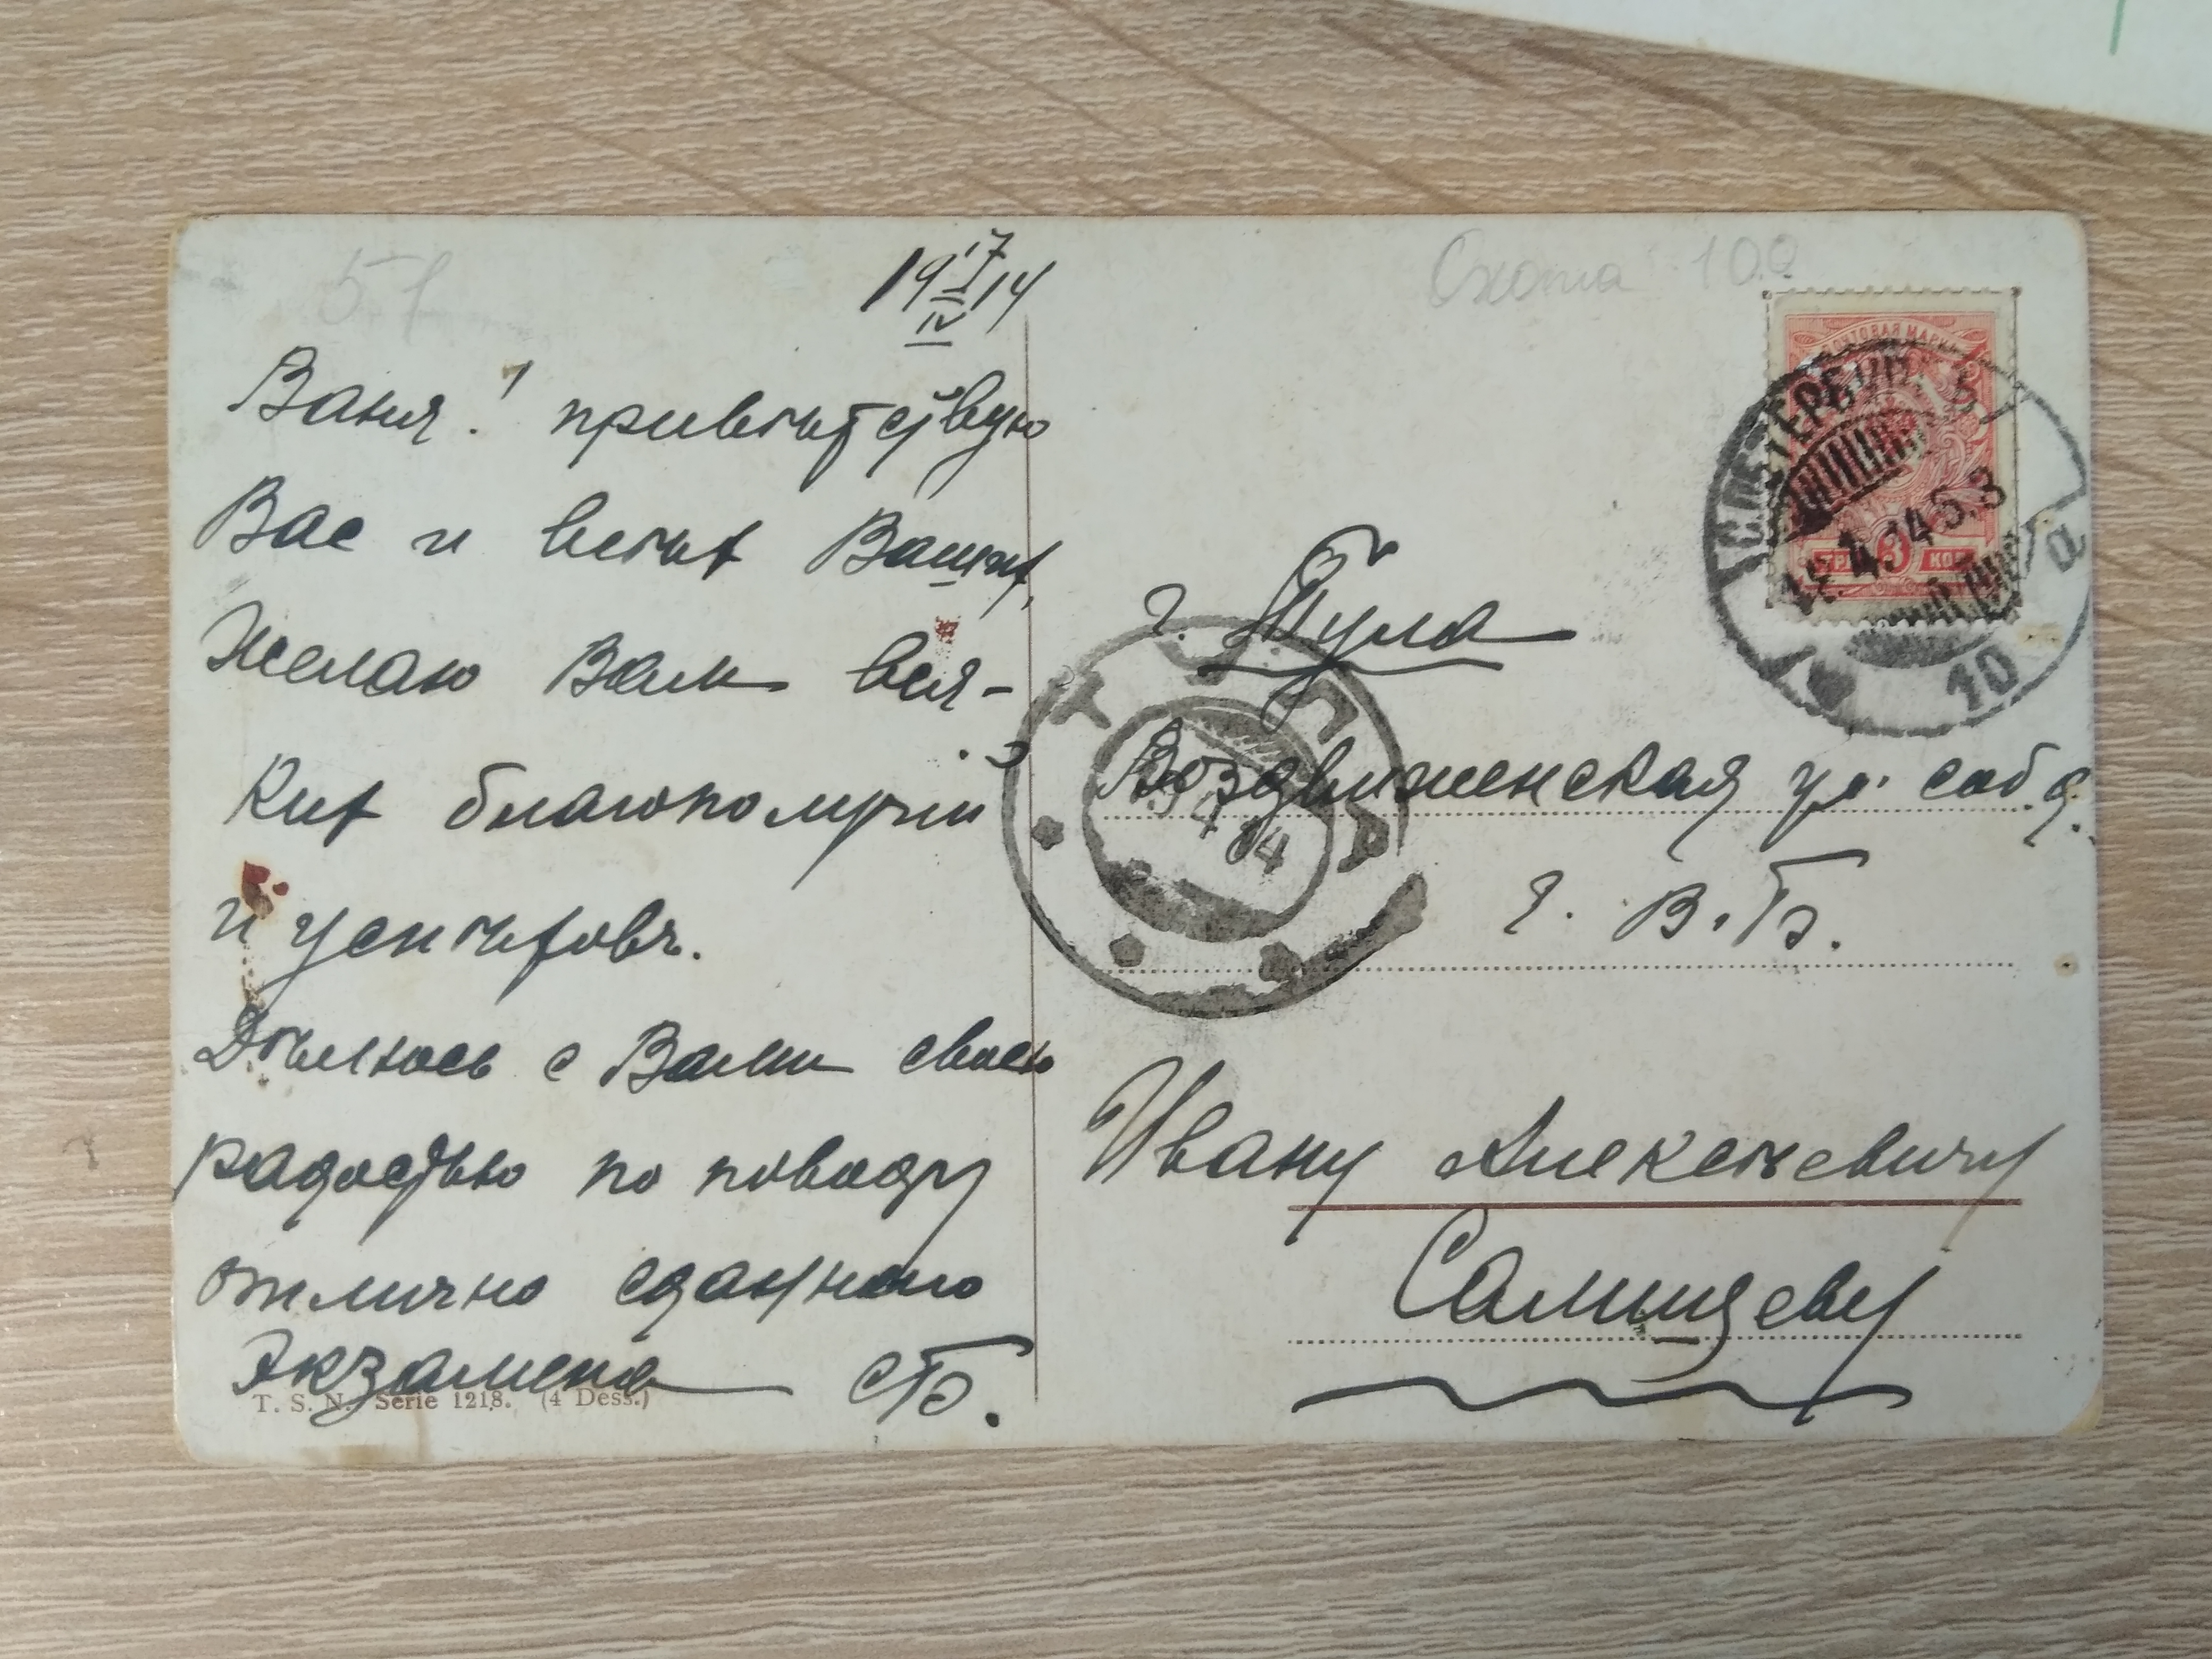 51
19 17/IV 14
Ваня! привѣтствую
Вас и всѣх Ваших,
Желаю Вам вся-
ких благополучій
и успѣхов.
Дѣлюсь с Вами своею
радостью по поводу
отлично сданнаго
Экзамена СБ.
T. S. N. Serie 1218. (4 Dess.)
Охота 100
ПОЧТОВАЯ МАРКА
3 КОП
С.ПЕТЕРБУРГ
4 14
10
а
г. Тула
ТУЛА
4 14
Воздвиженская ул. соб. д.
г. В. Б.
Ивану Алексѣевичу
Салищеву